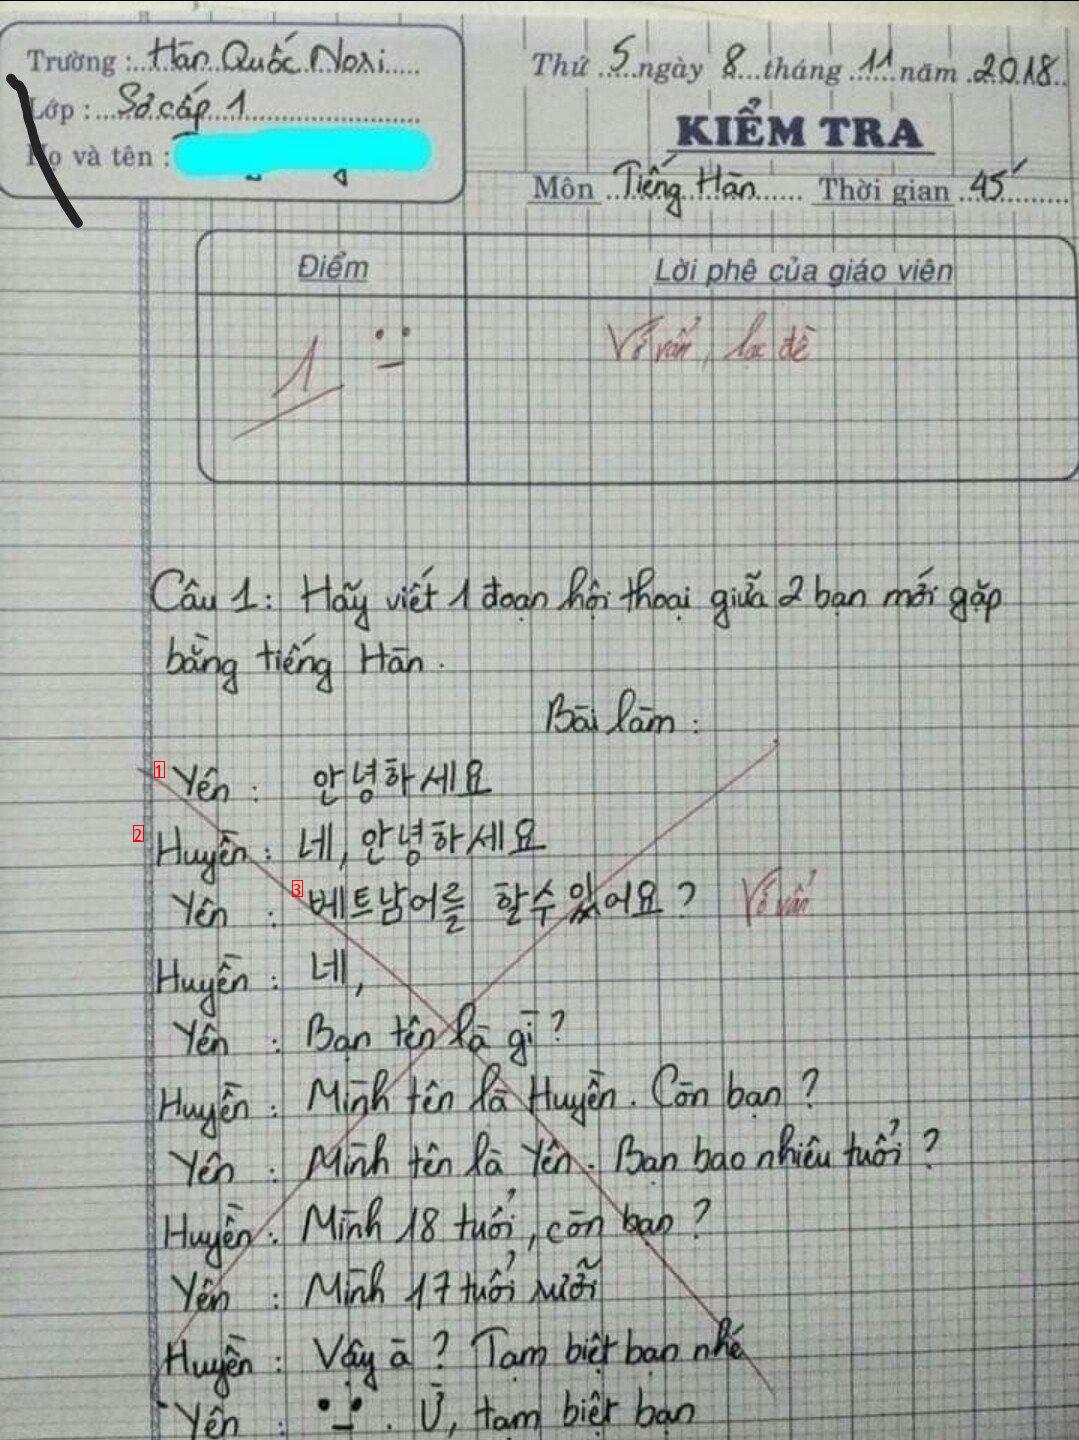 Trường : Hàn Quốc Nori
Thứ 5 ngày 8 tháng 11 năm 2018
Lớp : Sơ cấp 1
KIỂM TRA
Họ và tên :
Môn Tiếng Hàn Thời gian 45'
Điểm
Lời phê của giáo viên
1
Vớ vẩn, lạc đề
Câu 1: Hãy viết 1 đoạn hội thoại giữa 2 bạn mới gặp
bằng tiếng Hàn.
Bài làm :
1 Yên : 안녕하세요
2 Huyền : 네, 안녕하세요
Yên : 3 베트남어를 할수 있어요? Vớ vẩn
Huyền : 네,
Yên : Bạn tên là gì?
Huyền : Mình tên là Huyền. Còn bạn?
Yên : Mình tên là Yên. Bạn bao nhiêu tuổi?
Huyền : Mình 18 tuổi, còn bạn?
Yên : Mình 17 tuổi rưỡi
Huyền : Vậy à? Tạm biệt bạn nhé
Yên : . Ừ, tạm biệt bạn